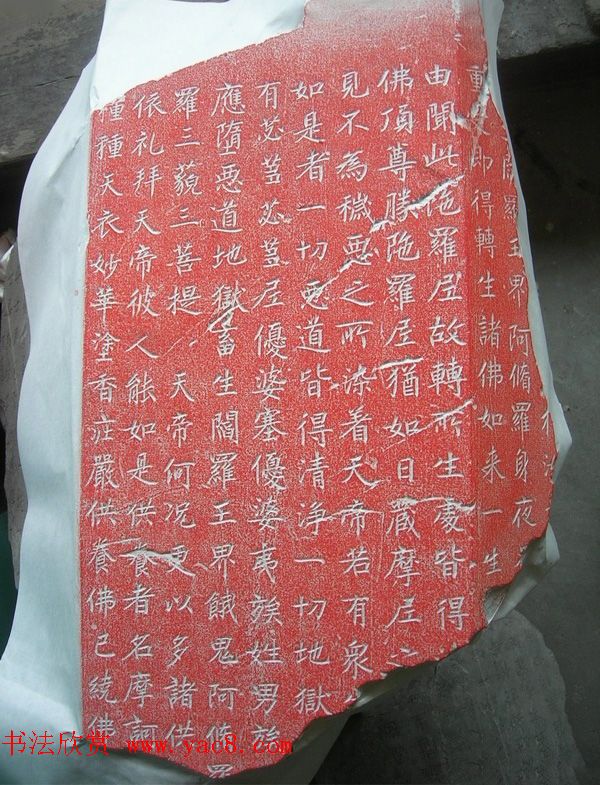 閻羅王界阿脩羅身夜
重即得轉生諸佛如来一生
由聞此陁羅层故轉所生處皆得
佛頂尊勝陁羅层猶如日藏摩层之
見不為穢惡之所染着天帝若有衆
如是者一切惡道皆得清淨一切地獄
有苾蒭苾蒭层優婆塞優婆夷族姓男族
應墮惡道地獄畜生閻羅王界餓鬼阿脩羅
羅三藐三菩提天帝何況更以多諸供
依礼拜天帝彼人能如是供養者名摩訶
種種天衣妙華塗香莊嚴供養佛已繞佛
书法欣赏 www.yac8.com